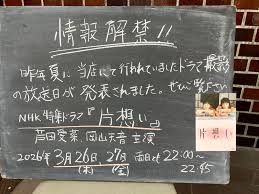 情報解禁!!
昨年夏に当店にて行われていましたドラマ撮影
の放送日が発表されました。ぜひご覧下さい
NHK 特集ドラマ『片想い』
芦田愛菜、岡山天音 主演
2026年 3月26日、27日 両日とも 22:00〜
(木) (金) 22:45
片想い